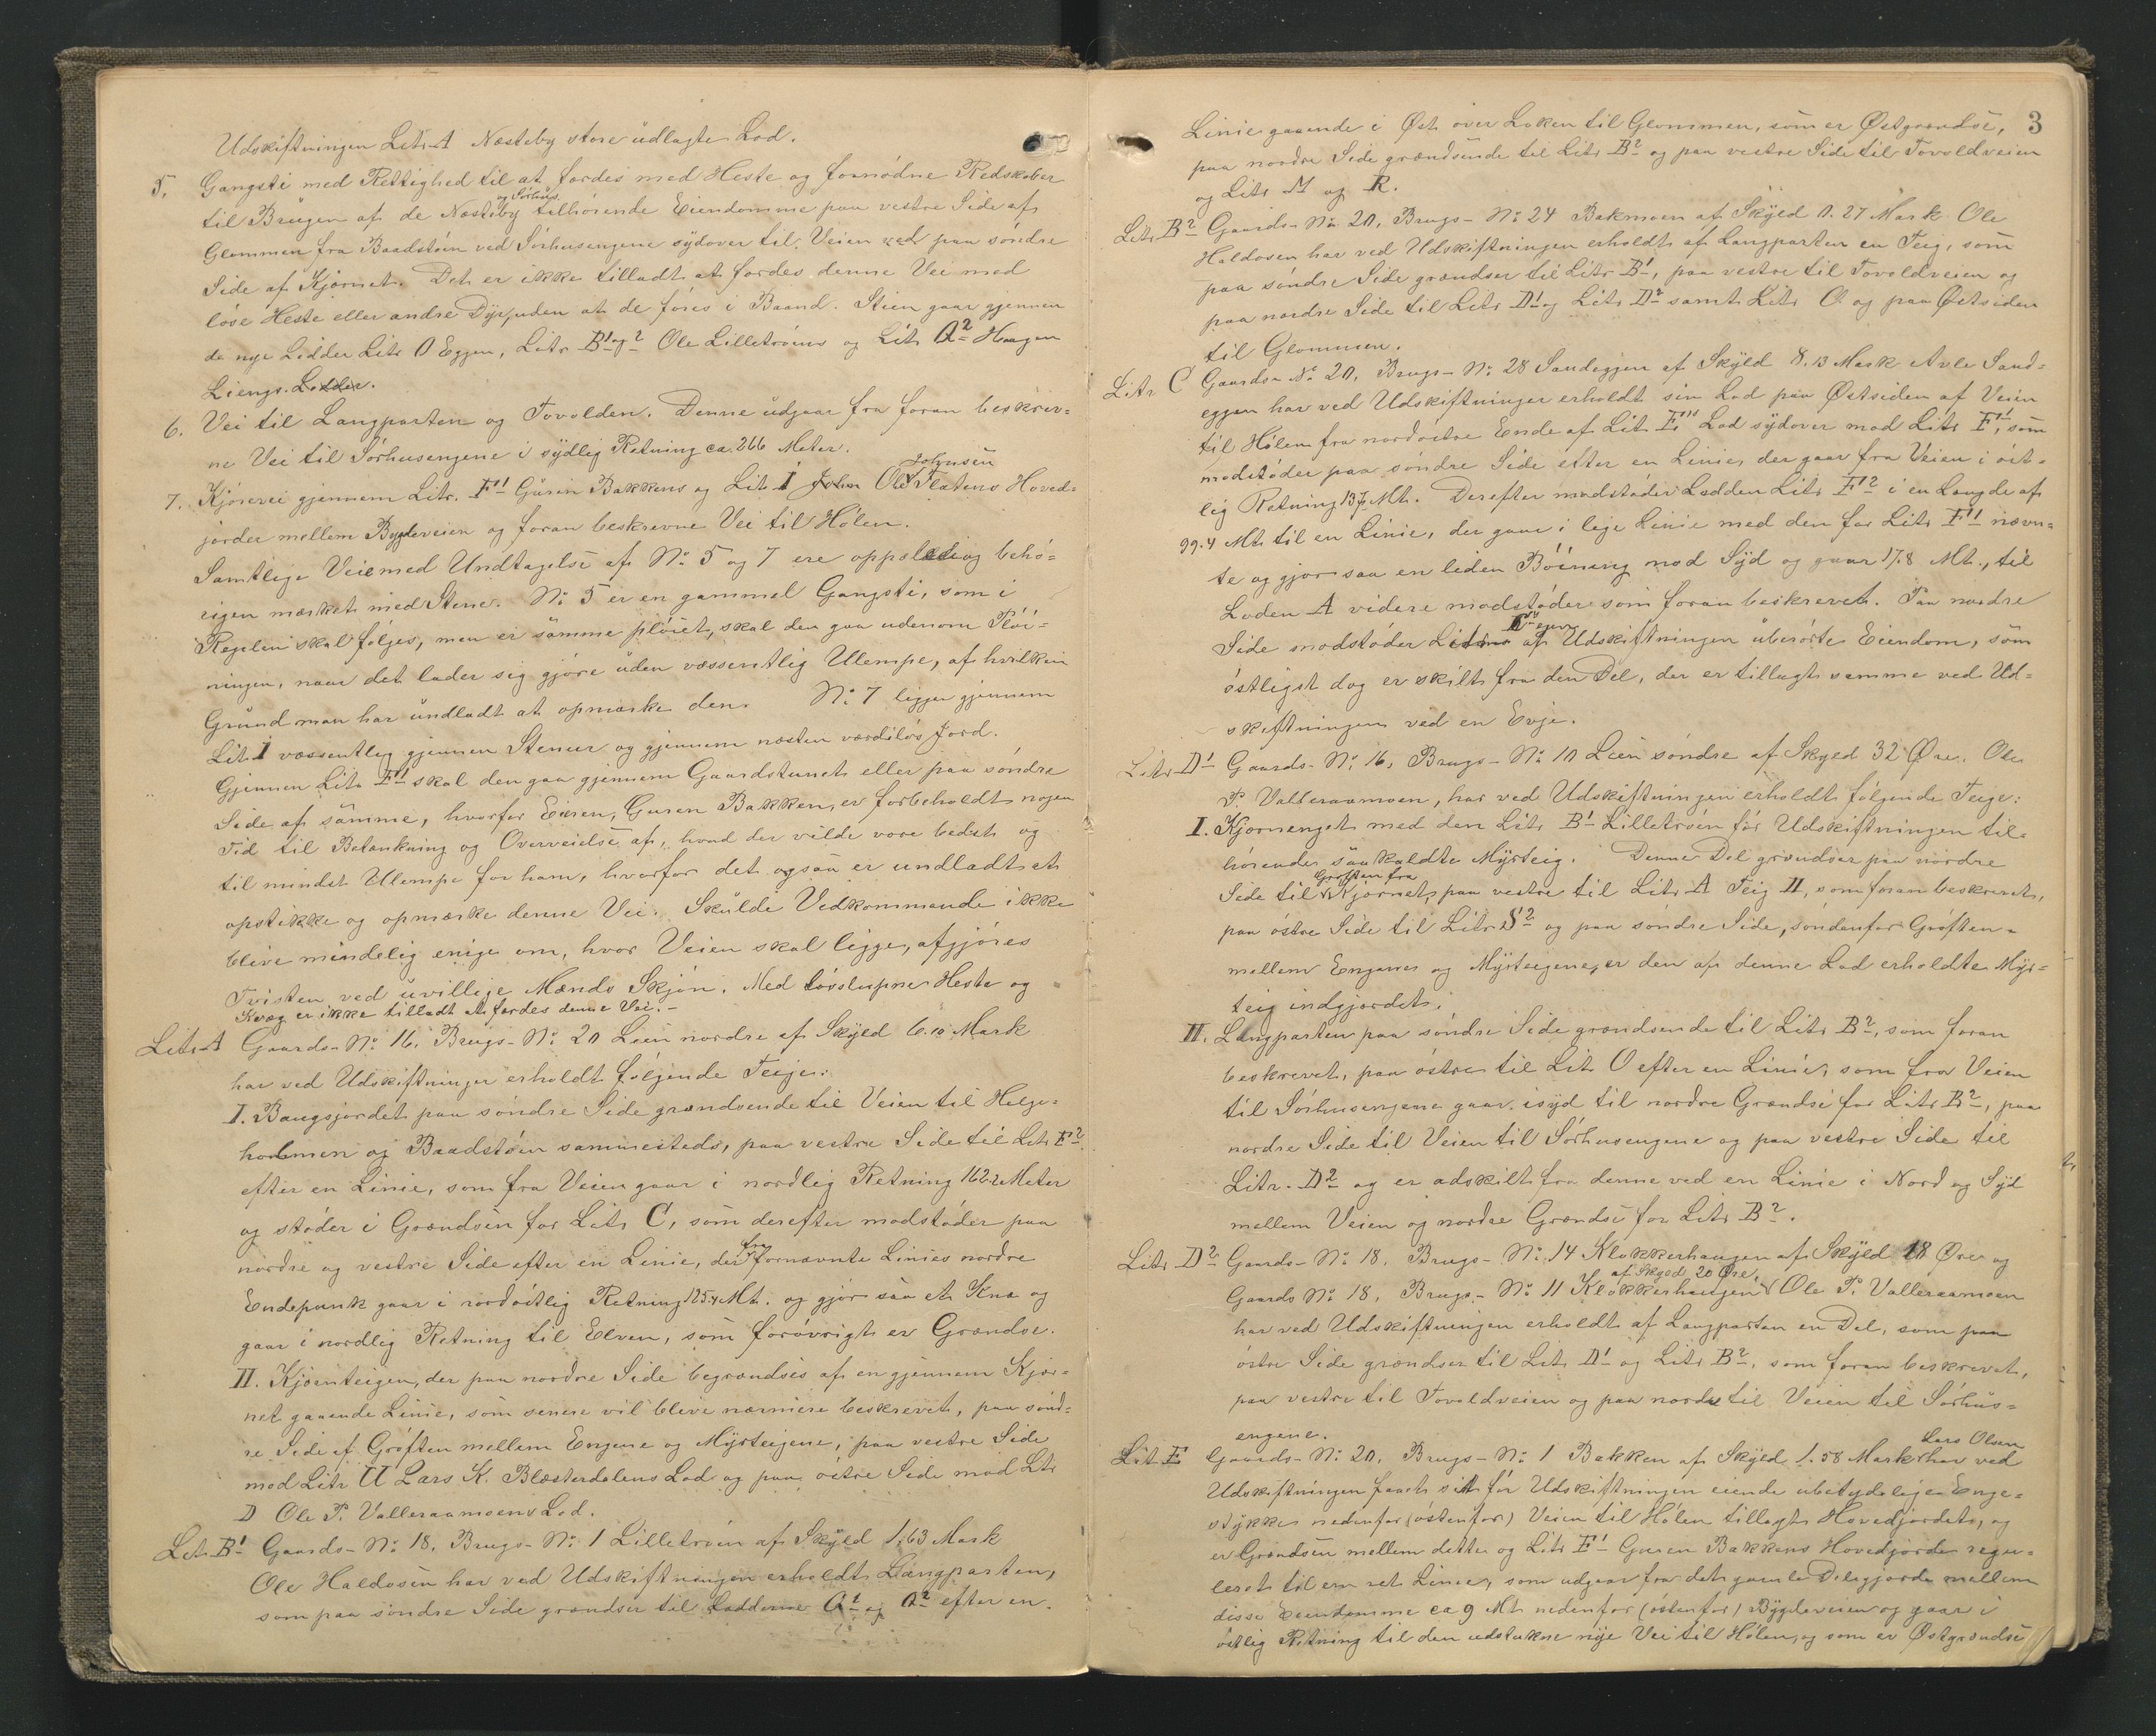 Udskiftningen Litr A Næsteby store udlagte Lod.
5. Gangsti med Rettighed til at færdes med Heste og fornødne Redskaber
og Sørhus.
til Brugen af de Næsteby tilhørende Eiendomme paa vestre Side af
Glommen fra Baadstøen ved Sørhusengene sydover til Veien ved paa søndre
Side af Kjørnet. Det er ikke tilladt at færdes denne Vei med
løse Heste eller andre Dyr, uden at de føres i Baand. Stien gaar gjennem
de nye Lodder Litr O Eggen, Litr B1 og 2 Ole Lilletrøens og Litr Q2 Haagen
Liengs Lodder.
6. Vei til Langparten og Tovolden. Denne udgaar fra foran beskrev-
ne Vei til Sørhusengene i sydlig Retning ca. 266 Meter.
Johnsen
7. Kjørevei gjennem Litr. F1 Guren Bakkens og Litr I John Ole Flatens Hoved-
jorder mellem Bygdeveien og foran beskrevne Vei til Hølen.
Samtlige Veie med Undtagelse af No 5 og 7 ere oppælede og behø-
rigen mærket med Stene. No 5 er en gammel Gangsti, som i
Regelen skal følges, men er samme pløiet, skal den gaa udenom Pløi-
ningen, naar det lader sig gjøre uden væssentlig Ulempe, af hvilken
Grund man har undladt at opmærke den. No 7 ligger gjennem
Litr I væssentlig gjennem Stenur og gjennem næsten værdiløs Jord.
Gjennem Litr F1 skal den gaa gjennem Gaardstunet eller paa søndre
Side af samme, hvorfor Eieren, Guren Bakken, er forbeholdt nogen
Tid til Betænkning og Overveielse af, hvad der vilde være bedst og
til mindst Ulempe for ham, hvorfor det ogsaa er undladt at
opstikke og opmærke denne Vei. Skulde Vedkommende ikke
blive mindelig enige om, hvor Veien skal ligge, afgjøres
Tvisten ved uvillige Mænds Skjøn. Med løsslupne Heste og
Kvæg er ikke tilladt at færdes denne Vei.-
Litr A Gaards-No 16, Brugs-No 20 Leen nordre af Skyld 6.10 Mark
har ved Udskiftningen erholdt følgende Teige:
I. Baugsjordet paa søndre Side grændsende til Veien til Helge-
holmen og Baadstøen sammesteds, paa vestre Side til Litr F2
efter en Linie, som fra Veien gaar i nordlig Retning 162.2 Meter
og støder i Grændsen for Litr C, som derefter modstøder paa
fra
nordre og vestre Side efter en Linie, der fornævnte Linies nordre
Endepunk gaar i nordøstlig Retning 125.4 Mt. og gjør saa et Knæ og
gaar i nordlig Retning til Elven, som forøvrigt er Grændse.
II. Kjørnteigen, der paa nordre Side begrændses af en gjennem Kjør-
net gaaende Linie, som senere vil blive nærmere beskrevet, paa sønd-
re Side af Grøften mellem Engene og Myrteigene, paa vestre Side
mod Litr U Lars K. Blæsterdalens Lod og paa østre Side mod Litr
D Ole P. Valleraamoens Lod.
Litr B1 Gaards-No 18, Brugs-No 1 Lilletrøen af Skyld 1,63 Mark
Ole Haldosen har ved Udskiftningen erholdt Langparten,
som paa søndre Side grændser til Lodderne Q1 og Q2 efter en
3
Linie gaaende i Øst over Loken til Glommen, som er Østgrændse,
paa nordre Side grændsende til Litr B2 og paa vestre Side til Tovoldveien
og Litr M og R.
Litr B2 Gaards-No 20, Brugs-No 24 Bakmoen af Skyld 0.27 Mark Ole
Haldosen har ved Udskiftningen erholdt af Langparten en Teig, som
paa søndre Side grændser til Litr B1, paa vestre til Tovoldveien og
paa nordre Side til Litr D1 og Litr D2 samt Litr O og paa Østsiden
til Glommen.
Litr C Gaards-No 20, Brugs-No 28 Sandeggen af Skyld 8.13 Mark Arle Sand-
eggen har ved Udskiftningen erholdt sin Lod paa Østsiden af Veien
til Hølen fra nordøstre Ende af Litr F1 Lod sydover mod Litr F1, som
modstøder paa søndre Side efter en Linie, der gaar fra Veien i øst-
lig Retning 137 Mt. Derefter modstøder Lodden Litr F2 i en Længde af
99.4 Mt. til en Linie, der gaar i lige Linie med den for Litr F1 nævn-
te og gjør saa en liden Bøining mod Syd og gaar 17.8 Mt., til
Loden A videre modstøder som foran beskrevet. Paa nordre
egen
Side modstøder af Udskiftningen uberørte Eiendom, som
østligst dog er skilt fra den Del, der er tillagt samme ved Ud-
skiftningen ved en Evje.
Litr D1 Gaards-No 16, Brugs-No 10 Leen søndre af Skyld 32 Øre. Ole
P. Valleraamoen, har ved Udskiftningen erholdt følgende Teige:
I. Kjørnenget med den Litr B1 Lilletrøen før Udskiftningen til-
hørende saakaldte Myrteig. Denne Del grændser paa nordre
Grøften fra
Side til Kjørnet, paa vestre til Litr A Teig II, som foran beskrevet,
paa østre Side til Litr S2 og paa søndre Side, søndenfor Grøften
mellem Engene og Myrteigene, er den af denne Lod erholdte Myr-
teig indgjordet.
II. Langparten paa søndre Side grændsende til Litr B2, som foran
beskrevet, paa østre til Litr O efter en Linie, som fra Veien
til Sørhusengene gaar i syd til nordre Grændse for Litr B2, paa
nordre Side til Veien til Sørhusengene og paa vestre Side til
Litr. D2 og er adskilt fra denne ved en Linie i Nord og Syd
mellem Veien og nordre Grændse for Litr B2.
Litr D2 Gaards-No 18, Brugs-No 14 Klokkerhaugen af Skyld 18 Øre og
af Skyld 20 Øre,
Gaards No 18, Brugs-No 11 Klokkerhaugen Ole P. Valleraamoen
har ved Udskiftningen erholdt af Langparten en Del, som paa
østre Side grændser til Litr D1 og Litr B2, som foran beskrevet,
paa vestre til Tovoldveien og paa nordre til Veien til Sørhus-
engene.
Lars Olsen
Litr E Gaards-No 20, Brugs-No 1 Bakken af Skyld 1.58 Mark har ved
Udskiftningen faaet sit før Udskiftningen eiende ubetydelige Enge-
stykke nedenfor (østenfor) Veien til Hølen tillagt Hovedjordet, og
er Grændsen mellem dette og Litr F1 Guren Bakkens Hovedjorde regu-
leret til en ret Linie, som udgaar fra det gamle Delegjærde mellem
disse Eiendomme ca 9 Mt. nedenfor (østenfor) Bygdeveien og gaar i
østlig Retning til den udstukne nye Vei til Hølen, og som er Østgrændse